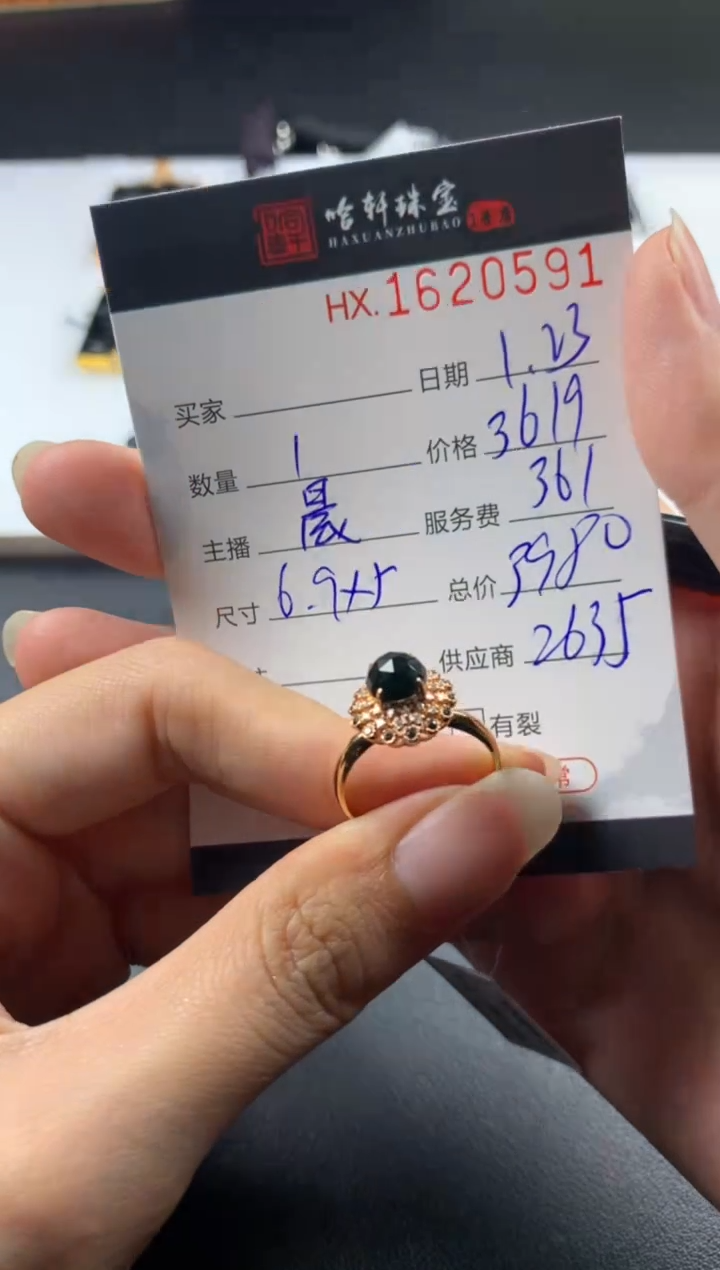 哈轩珠宝
HAXUANZHUBAO
HX.1620591
买家 日期 1.23
数量 1 价格 3619
主播 晨 服务费 361
尺寸 6.9x5 总价 3980
供应商 2635
有裂
常